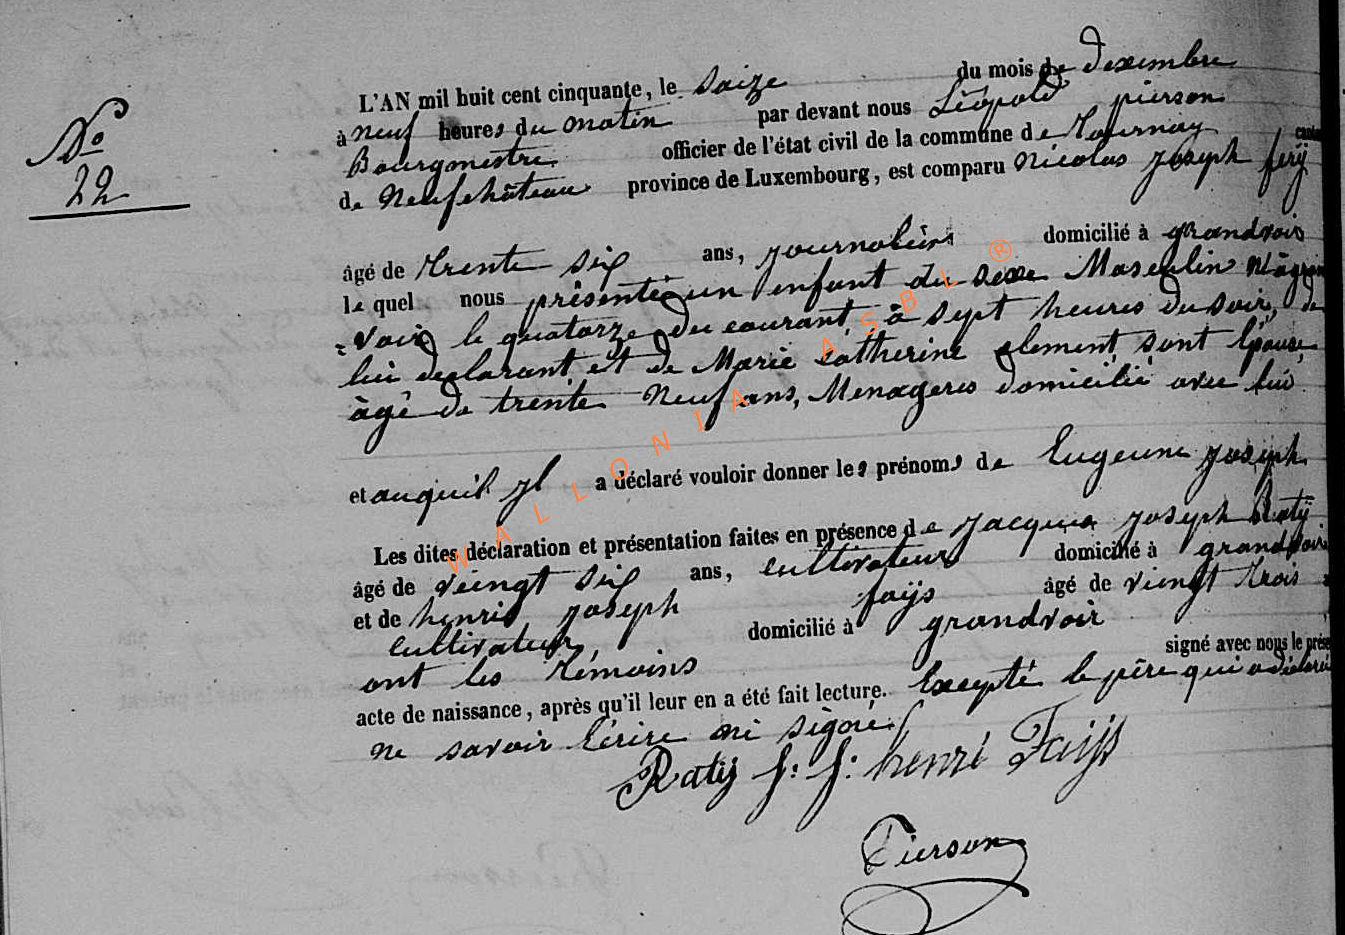 No
22
L'AN mil huit cent cinquante, le saize du mois de dexembre
à neuf heures du matin par devant nous Léopold pierson
Bourgmestre officier de l'état civil de la commune de Tournay
de Neufchâteau province de Luxembourg, est comparu nicolas joseph ferÿ
âgé de trente six ans, journalier domicilié à grandvoir
le quel nous présenté un enfant du sexe Masculin né à gran
= voir le quatorze du courant, à sept heures du soir, de
lui declarant et de Marie Catherine clement sont Epouse,
âgé de trente Neuf ans, Menagere domicilié avec lui
et auquil yl a déclaré vouloir donner les prénoms de Eugeune joseph
Les dites déclaration et présentation faites en présence de jacques joseph Ratÿ
âgé de veingt six ans, cultivateur domicilié à grandvoir
et de henri joseph faÿs âgé de vieingt trois
cultivateur domicilié à grandvoir
ont les témoins signé avec nous le prése
acte de naissance, après qu'il leur en a été fait lecture. Excepté le père qui a déclaré
ne savoir Ecrire ni signé
Ratÿ j: j: henri Faÿs
Pierson
WALLONIA ASBL ®